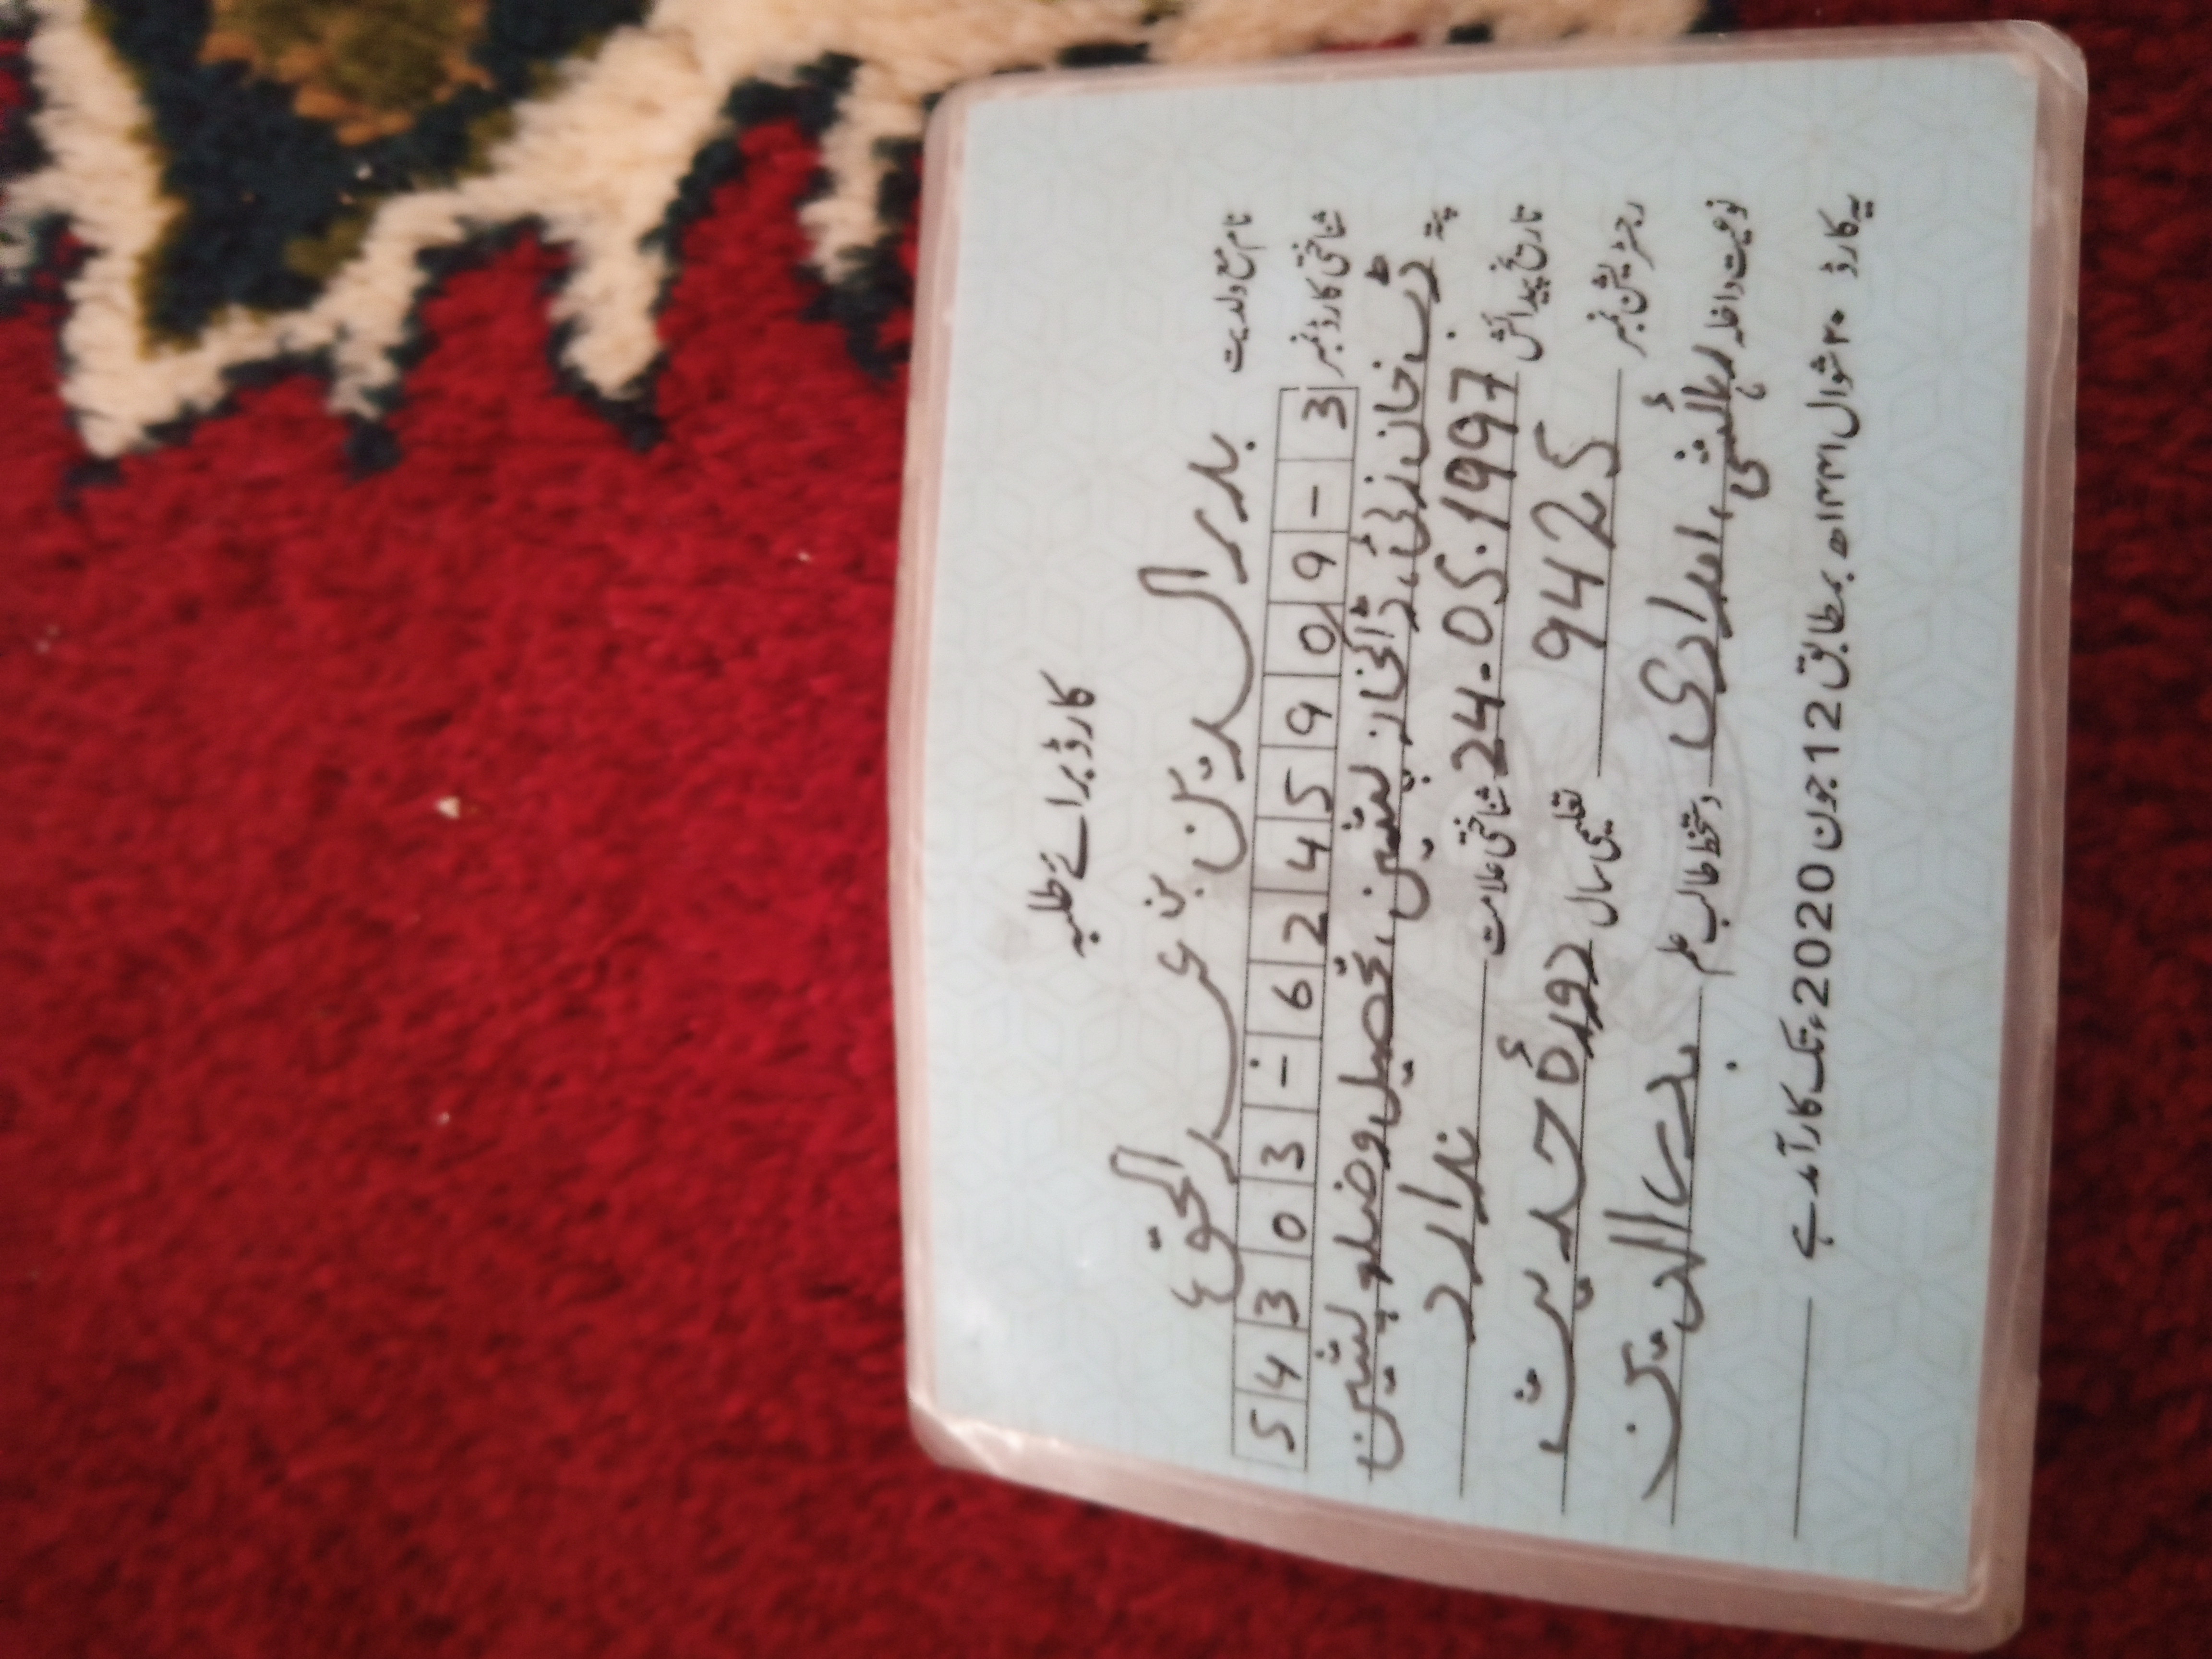 کارڈ برائے طلبہ
نام مع ولدیت بدرالدین بن عبدالحق
شناختی کارڈ نمبر 54303-6245909-3
پتہ خان زئی، ڈاکخانہ پشین، تحصیل و ضلع پشین
تاریخ پیدائش 24-05-1997 شناختی علامت ندارد
رجسٹریشن نمبر 9425 تعلیمی سال دورۂ حدیث
نوعیت داخلہ رہائشی، امدادی دستخط طالب علم بدرالدین
یہ کارڈ ۲۰ شوال ۱۴۴۱ھ بمطابق 12 جون 2020ء تک کارآمد ہے